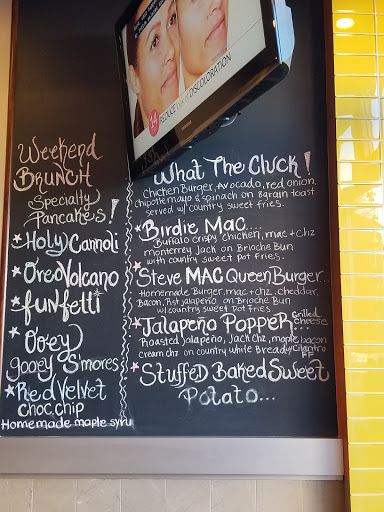 14 REDUCE LOOK OF DISCOLORATION
Weekend
BRUNCH
Specialty
Pancakes!
* Holy Cannoli
* Oreo Volcano
* funfetti
* Ooey
gooey S'mores
* Red Velvet
choc.chip
Homemade maple syru
What The Cluck!
Chicken Burger, Avocado, red onion,
chipotle mayo & spinach on 8 grain toast
served w/ country sweet fries.
* Birdie Mac....
Buffalo crispy chicken, mac + chz
monterrey Jack on Brioche Bun
with country sweet pot fries.
* Steve MAC Queen Burger...
Homemade Burger, mac + chz, cheddar,
Bacon, Rst jalapeño on Brioche Bun
w/country sweet pot fries.
* Jalapeño Popper Grilled cheese...
Roasted Jalapeño, Jack chz, maple bacon
cream chz on country white Bread w/ Cilantro
FF
* Stuffed Baked Sweet
Potato...